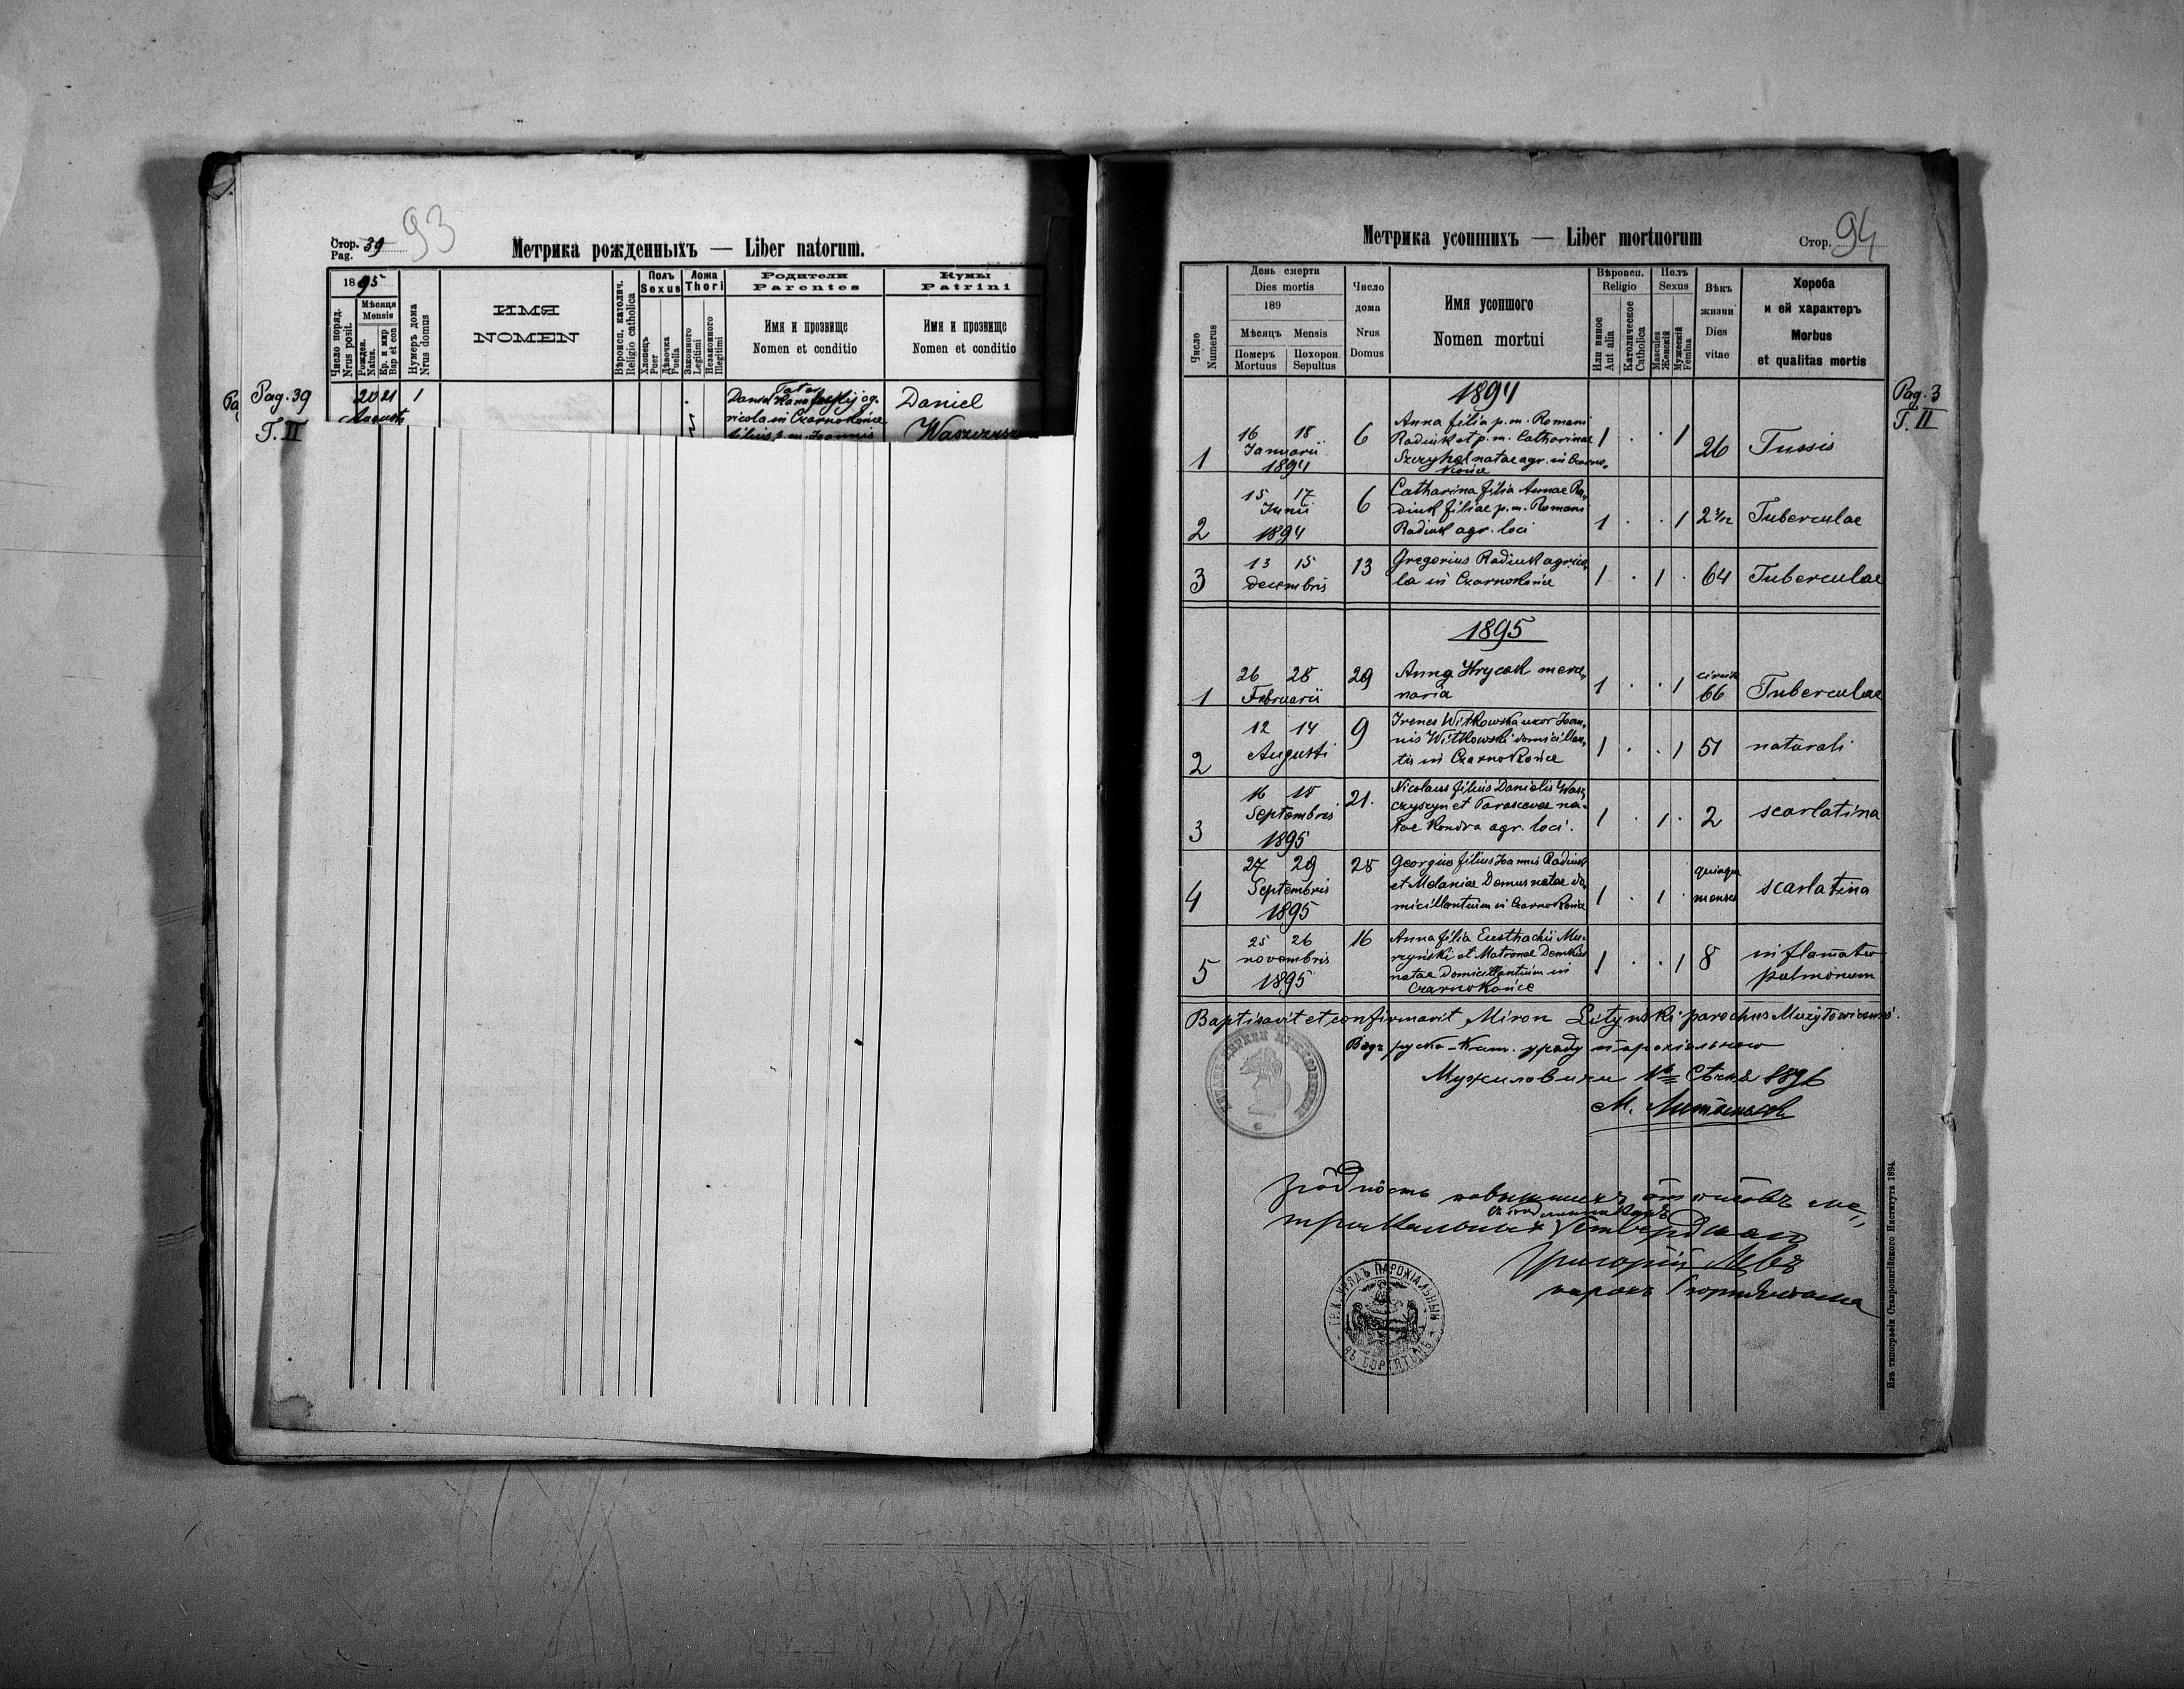 Стор. 39
Pag.
93
Метрика рожденныхъ — Liber natorum.
1895
Число поряд.
Nrus posit.
Мѣсяця
Mensis
Рожден.
Natus.
Кр. и мир
Bap et con
Нумеръ дома
Nrus domus
ИМЯ
NOMEN
Вѣроисп. католич.
Religio catholica
Полъ
Sexus
Хлопець
Puer
Дѣвочка
Puella
Ложа
Thori
Законного
Legitimi
Незаконного
Illegitimi
Родители
Parentes
Имя и прозвище
Nomen et conditio
Кумы
Patrini
Имя и прозвище
Nomen et conditio
Pag. 39
T. II
20 21
Augusti
1
Daniel
ricola in Czarnokońce
filius p. m. Joannis
Daniel
Метрика усопшихъ — Liber mortuorum
Стор. 94
Число
Numerus
День смерти
Dies mortis
189
Мѣсяцъ Mensis
Померъ
Mortuus
Похорон.
Sepultus
Число
дома
Nrus
Domus
Имя усопшого
Nomen mortui
Вѣроисп.
Religio
Или инное
Aut alia
Католическое
Catholica
Полъ
Sexus
Mascules
Женскій
Мужескій
Femina
Вѣкъ
жизни
Dies
vitae
Хороба
и ей характеръ
Morbus
et qualitas mortis
Pag. 3
T. II
1894
1
16 18
Januarii
1894
6
Anna filia p. m. Romani
Radiuk et p. m. Catharinae
Szczyhel natae agr. in Czarno-
końce
1 . . 1
26
Tussis
2
15 17
Junii
1894
6
Catharina filia Annae Ra-
diuk filiae p. m. Romani
Radiuk agr. loci
1 . . 1
2
Tuberculae
3
13 15
decembris
13
Gregorius Radiuk agrico-
la in Czarnokońce
1 . 1 .
64
Tuberculae
1895
1
26 28
Februarii
29
Anna Hrycak merce-
naria
1 . . 1
66
Tuberculae
2
12 14
Augusti
9
Irenes Witkowska uxor Joan-
nis Witkowski domicillan-
tis in Czarnokońce
1 . . 1
51
naturali
3
16 18
Septembris
1895
21.
Nicolaus filius Danielis Wasz-
czyszyn et Parascevae na-
tae Kondra agr. loci.
1 . 1 .
2
scarlatina
4
27 29
Septembris
1895
28
Georgius filius Joannis Radiuk
et Melaniae Domus natae do-
micillantium in Czarnokońce
1 . 1 .
quinque
menses
scarlatina
5
25 26
novembris
1895
16
Anna filia Eusthachii Mu-
rzyński et Matronae Demkus
natae domicillantium in
Czarnokońce
1 . . 1
8
inflamatio
pulmonum
Baptisavit et confirmavit Miron Litynski parochus
Відъ руско-кат. уряду парохіяльного
Мужиловичи 1896
М. Литынскій
Григорій Левъ
парохъ
ГР. К. УРЯДЪ ПАРОХІАЛЬНЫЙ
ВЪ БОРТЯТИНѢ
Изъ типографіи Ставропигійского Института 1894.